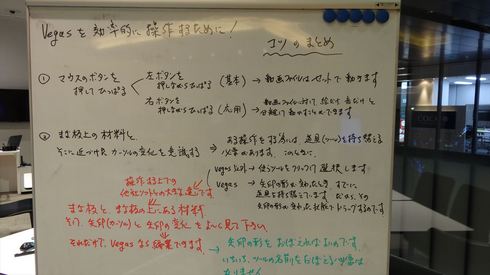 Vegasを効率的に操作するために!
コツのまとめ
① マウスのボタンを
押してひっぱる
左ボタンを
押しながらひっぱる (基本) → 動画ファイルはセットで動きます
右ボタンを
押しながらひっぱる (応用) → 動画ファイルに対して、絵だけ 音だけと
分離して動かすことができます
② まな板上の材料と、
そこに近づけた カーソルの変化を意識する
→ ある操作をする為には、道具(ツール)を持ち替える
必要があります。このときに、
Vegas以外 → 使うツールをクリックして 選択します
Vegas → 矢印の形が変わったとき、すでに
道具を持ち替えています。だから、その
矢印の形の変わった状態でドラッグするのです
操作する上での
他社ソフトとの大きな違いです
まな板と、まな板の上にある材料
そして、矢印(カーソル)と矢印の変化をよ〜く見て下さい
それだけで、Vegasなら編集できます。
→ 矢印の形をおぼえればよいのです。
いちいち、ツールの名前をおぼえる必要は
ありません